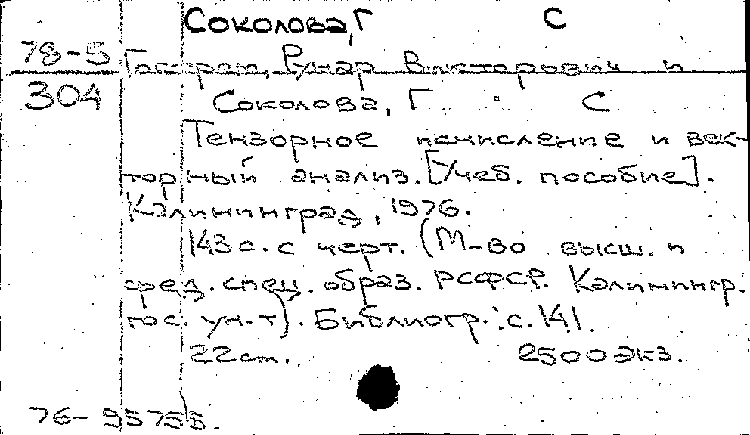 Соколова, Г С
78-5 Гострем, Рунар Викторович и
304 Соколова, Г. С
Тензорное исчисление и век-
торный анализ. [Учеб. пособие].
Калининград, 1976.
143 с. с черт. (М-во высш. и
сред. спец. образ. РСФСР. Калинингр.
гос. ун-т). Библиогр.: с. 141.
22 см. 2500 экз.
76-95755.